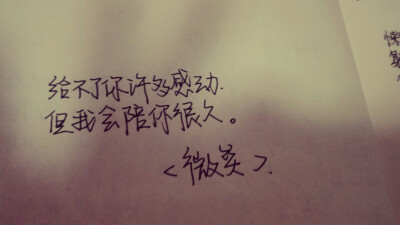 给不了你许多感动.
但我会陪你很久。
<微笑>.